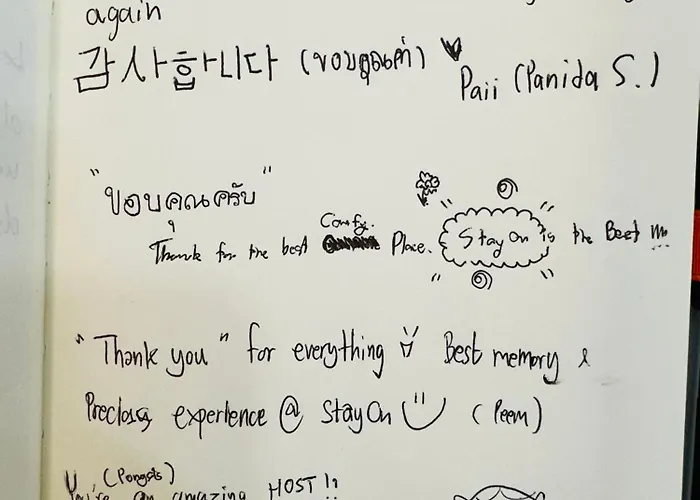 again
감사합니다 (ขอบคุณค่า) Paii (Panida S.)
"ขอบคุณครับ"
Comfy.
Thank for the best Place. Stay On is the Best
"Thank you" for everything Best memory &
experience @ StayOn (Peem)
(Pongsts)
You're an amazing HOST !!